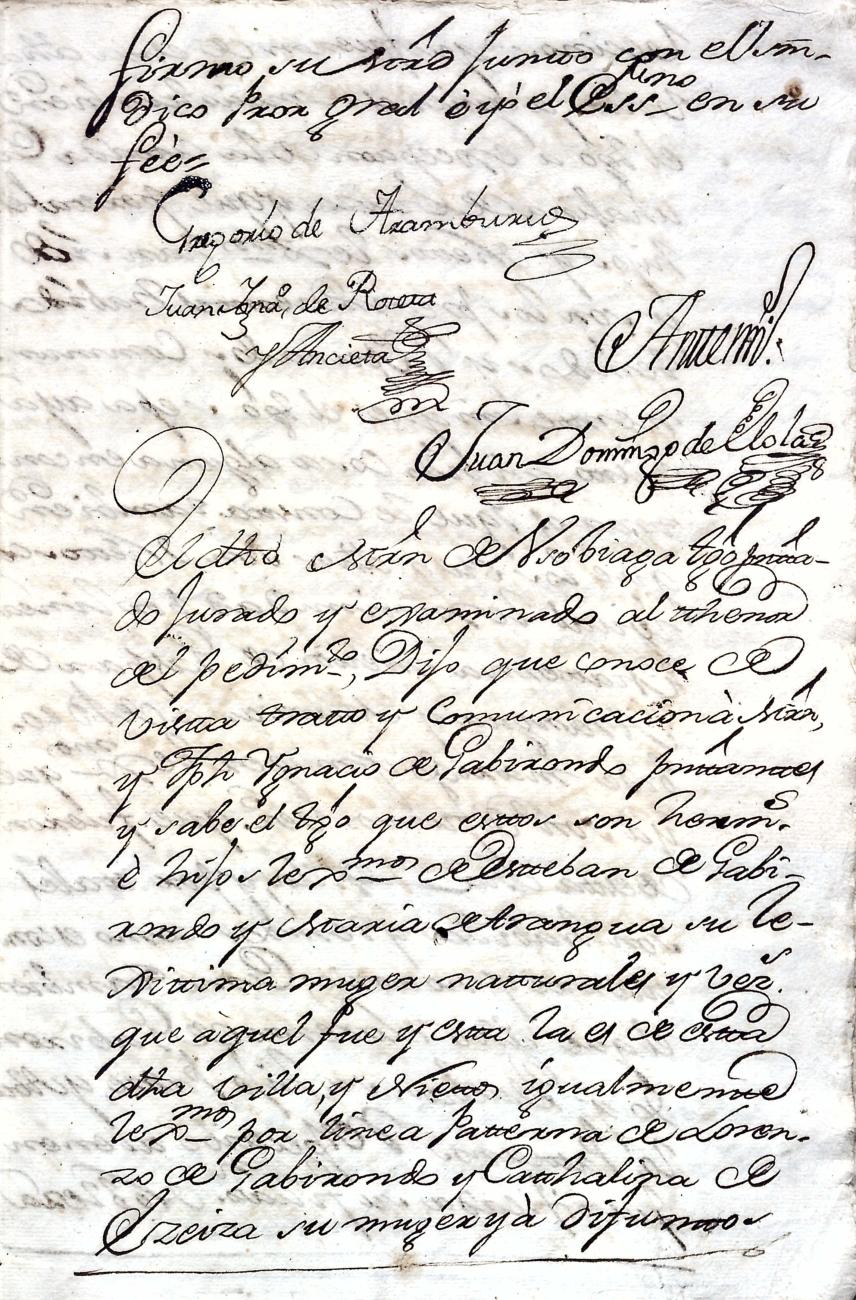 firmo su mrd Juntto con el Sin-
dico Pror Gral è yó el Essno en su
feè=
Gregorio de Aramburu
Juan Ignº. de Roteta
y Ancieta
Antemi.
Juan Domingo de Elola
El dho Mrn de Usobiaga tgo pntta-
do Jurado y examinado al tthenor
del pedimto, Dijo que conoce de
vistta tratto y comunicacion à Mrn,
y Jph Ygnacio de Gabirondo pnttantes
y sabe el tgo que esttos son herms.
è hijos lexmos de Estteban de Gabi-
rondo y Maria de Arangua su le-
xittima muger natturales y vezs.
que àquel fue y estta la es de estta
dha Villa, y Niettos igualmentte
lexmos por linea Patterna de Loren-
zo de Gabirondo y Catthalina de
Yzeiza su muger yà difunttos